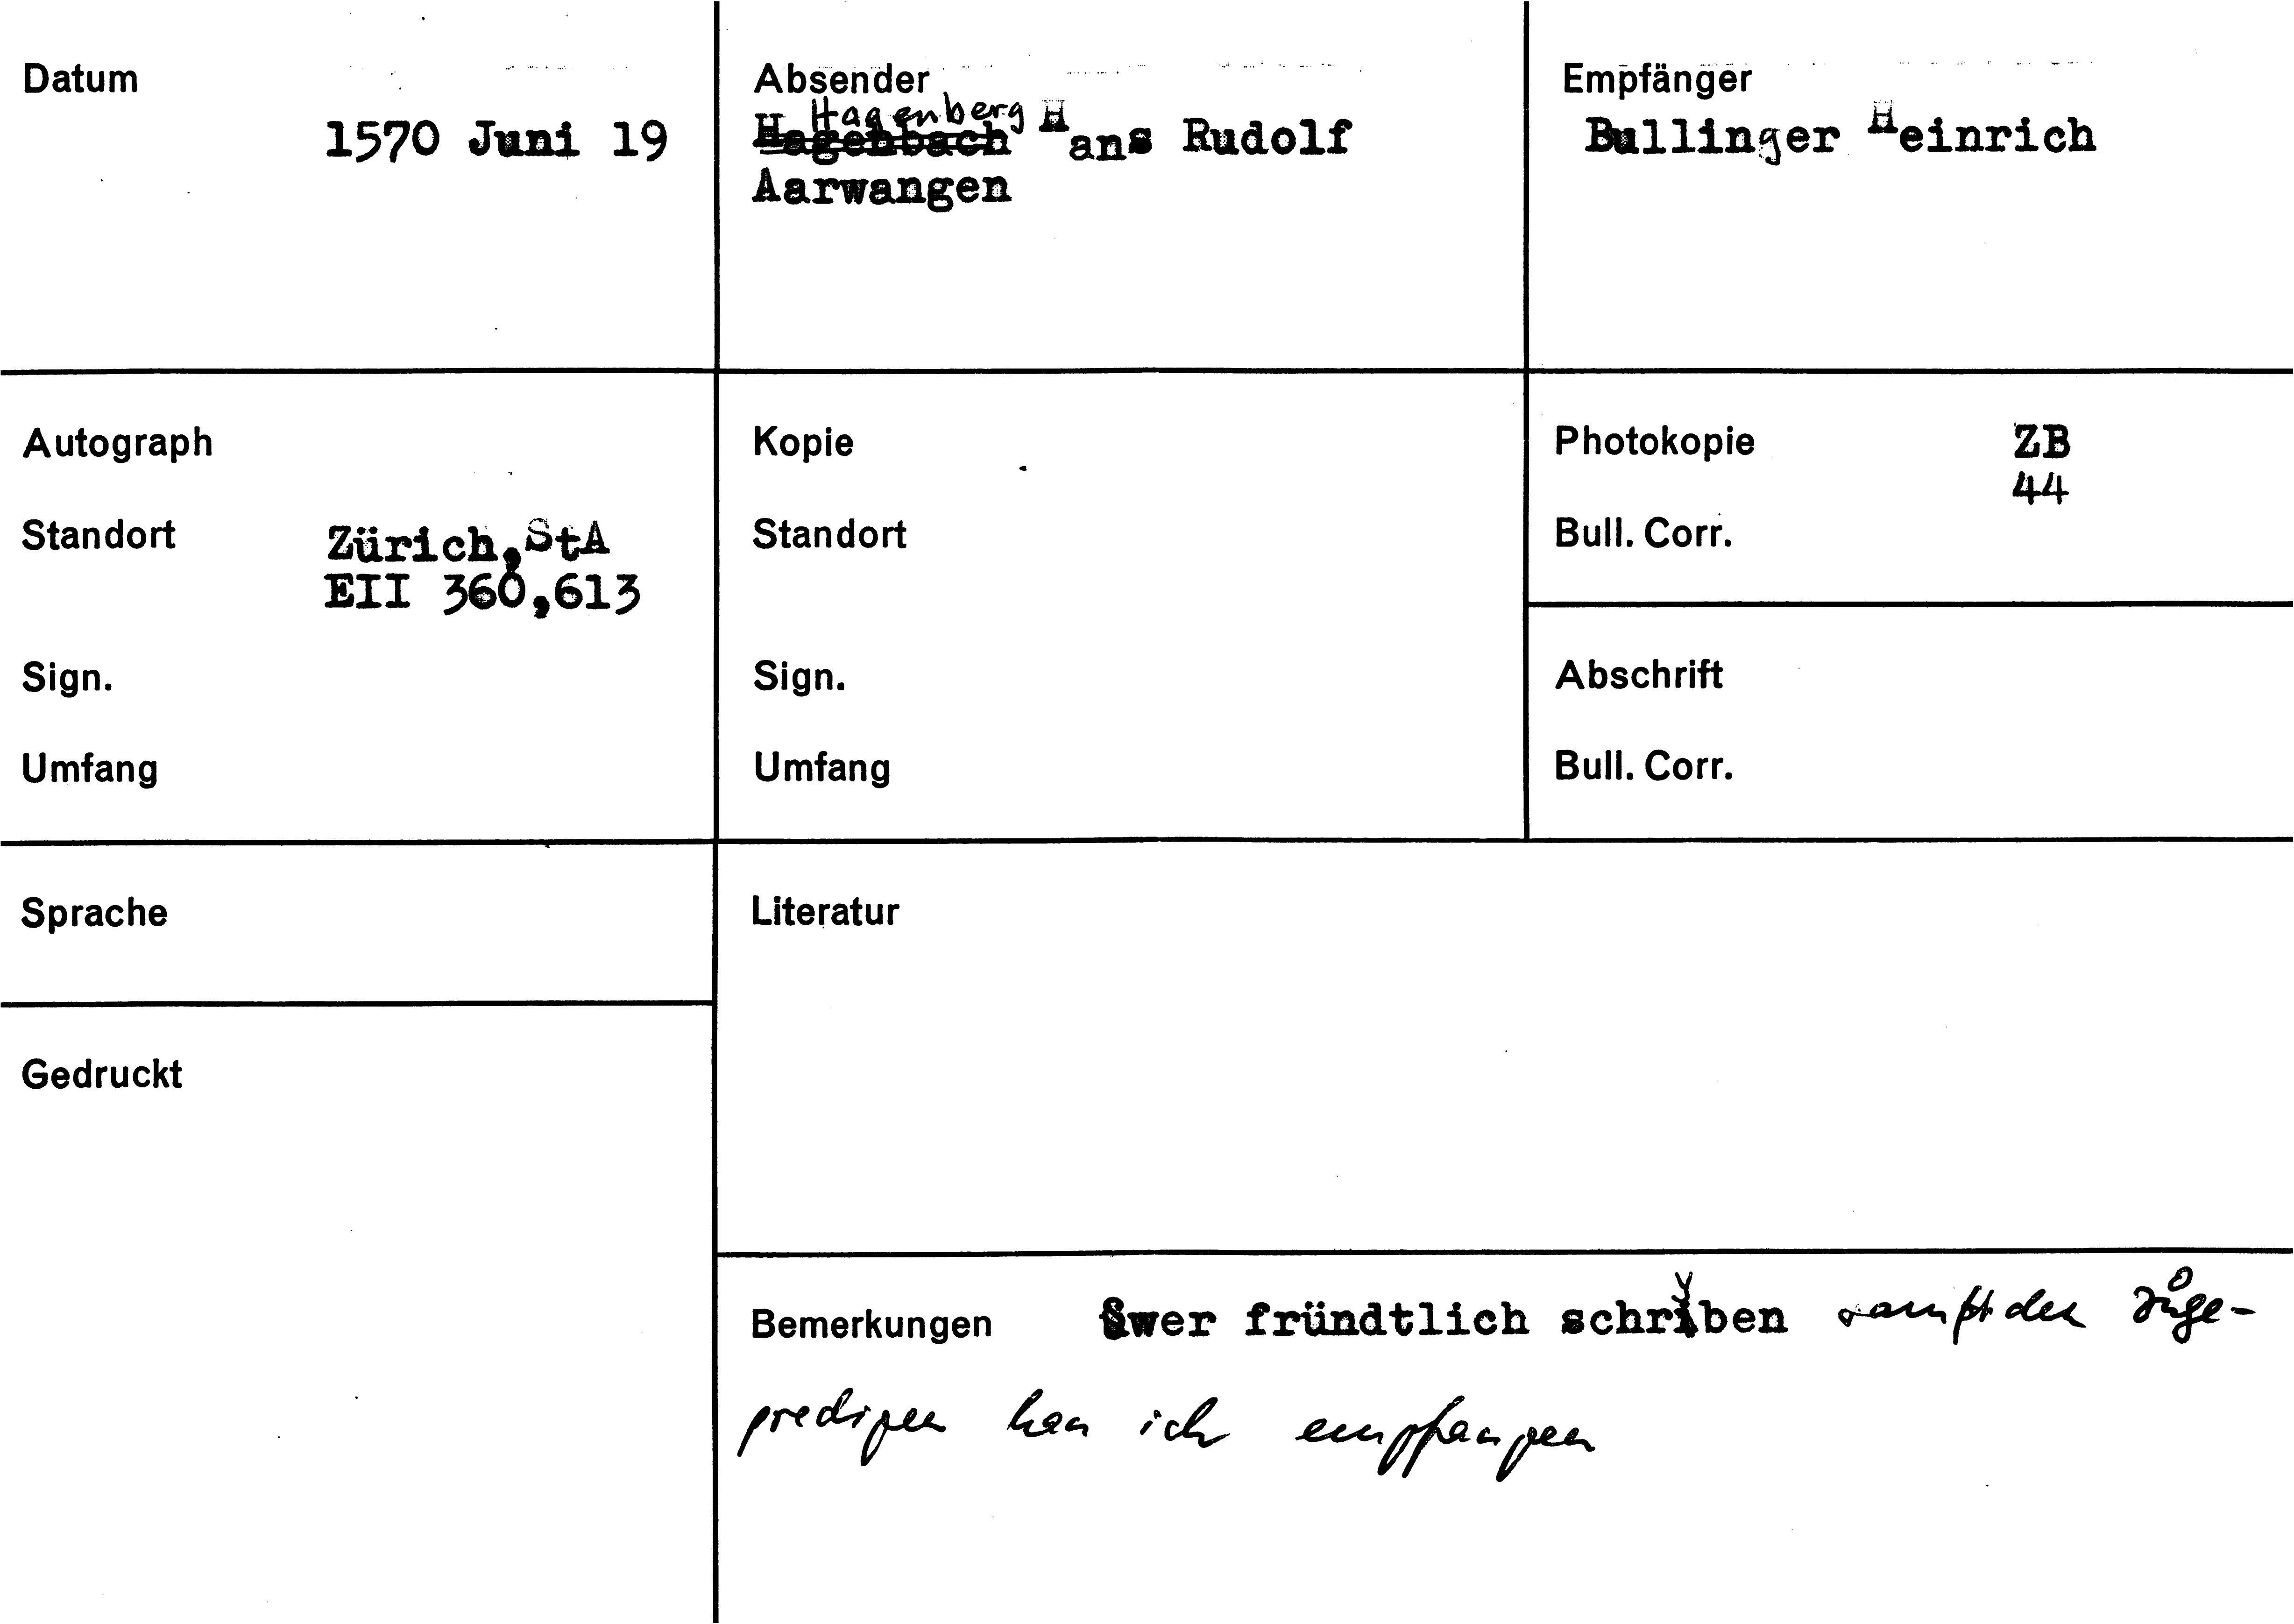 Datum
1570 Juni 19
Absender
Hagenberg
Hagenbach Hans Rudolf
Aarwangen
Empfänger
Bullinger Heinrich
Autograph
Standort
Zürich, StA
EII 360,613
Sign.
Umfang
Kopie
Standort
Sign.
Umfang
Photokopie ZB
44
Bull. Corr.
Abschrift
Bull. Corr.
Sprache
Literatur
Gedruckt
Bemerkungen wer fründtlich schryben sampt den zůge-
predigen han ich empfangen